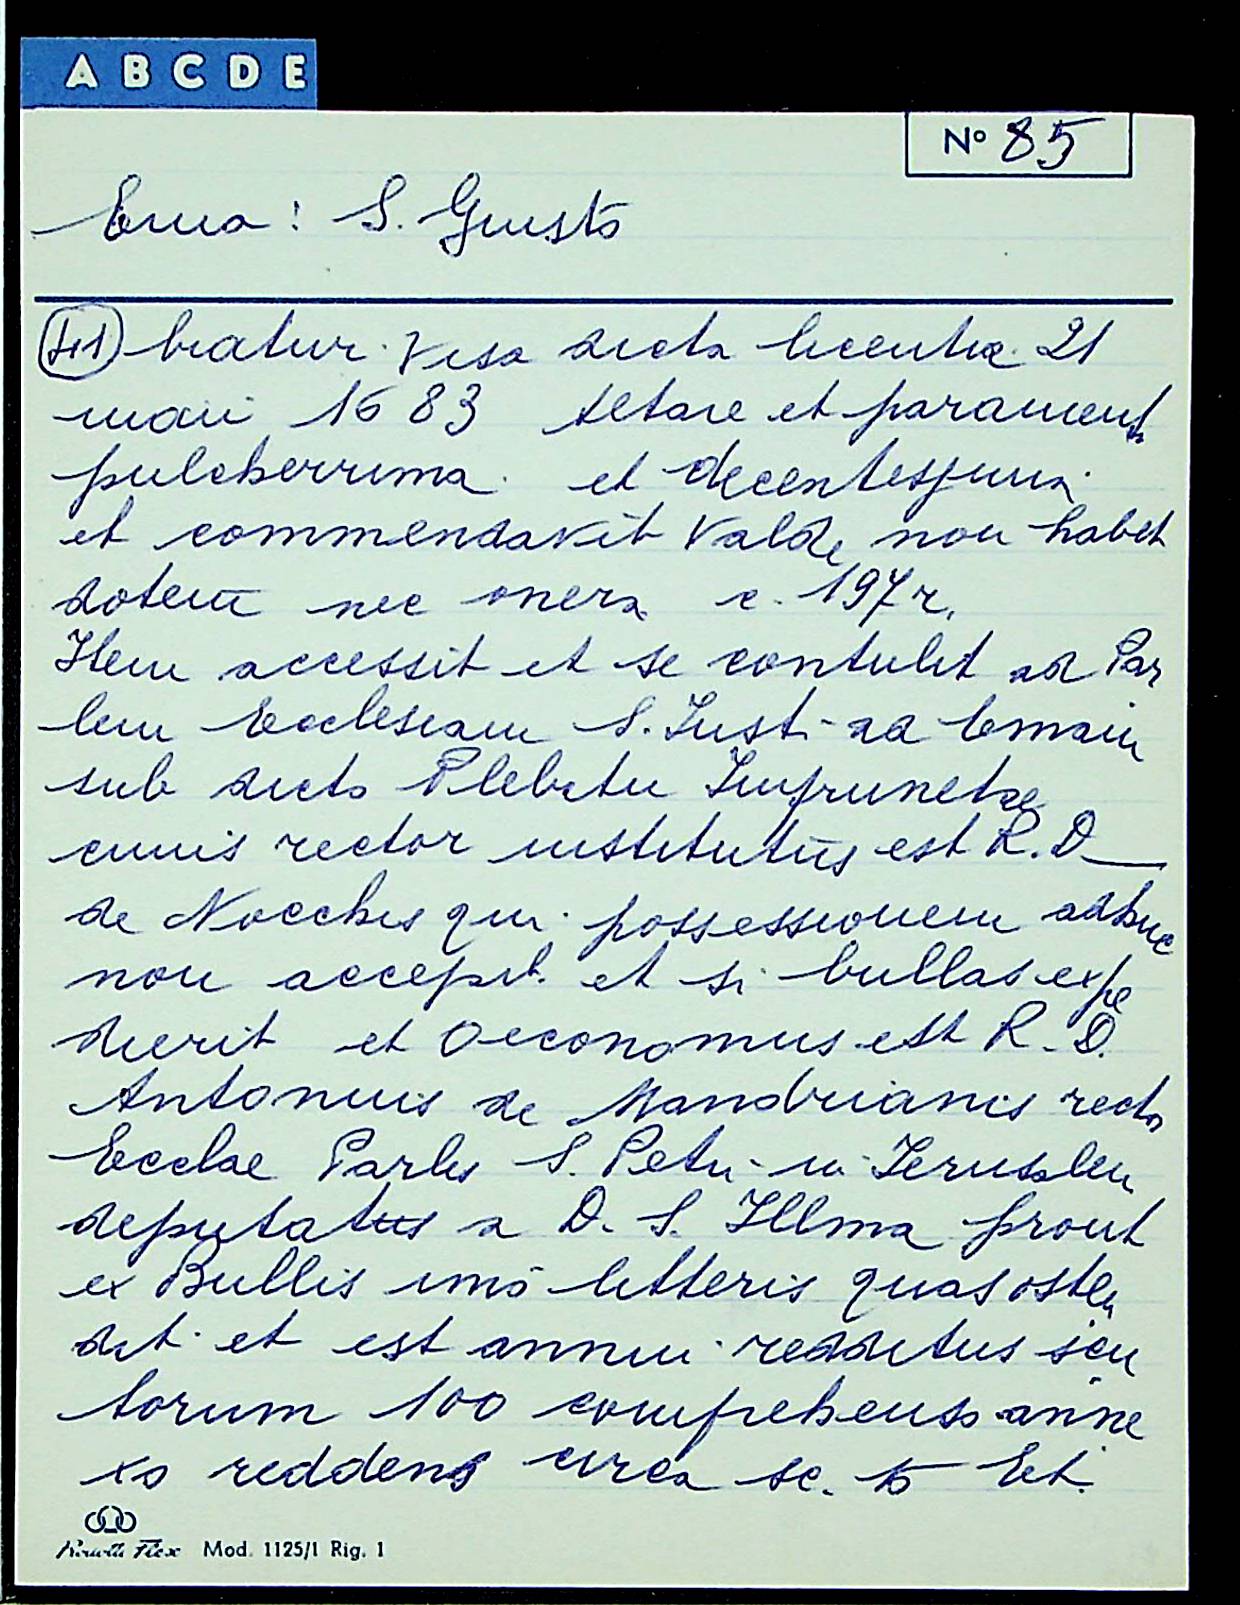 A B C D E
Nº 85
Ema: S. Giusto
bratur. Visa dicta licentia 21
maii 1683 Altare et parament
pulcherrima et decentissima
et commendavit valde non habet
dotem nec onera c. 197 r.
Item accessit et se contulit ad Par
lem Ecclesiam S. Iusti ad Emam
sub dicto Plebatu Imprunetae
cuius rector institutus est R. D.
de Nocchis qui possessionem adhuc
non accepit et si bullas expe
dierit et Oeconomus est R. D.
Antonius de Mandrianis recto
Ecclae Parlis S. Petri in Ierusalem
deputatus a D. S. Illma prout
ex Bullis imo litteris quas osten
dit et est annui redditus scu
torum 100 comprehenso anne
xo reddens circa sc. Et.
Mod. 1125/1 Rig. 1